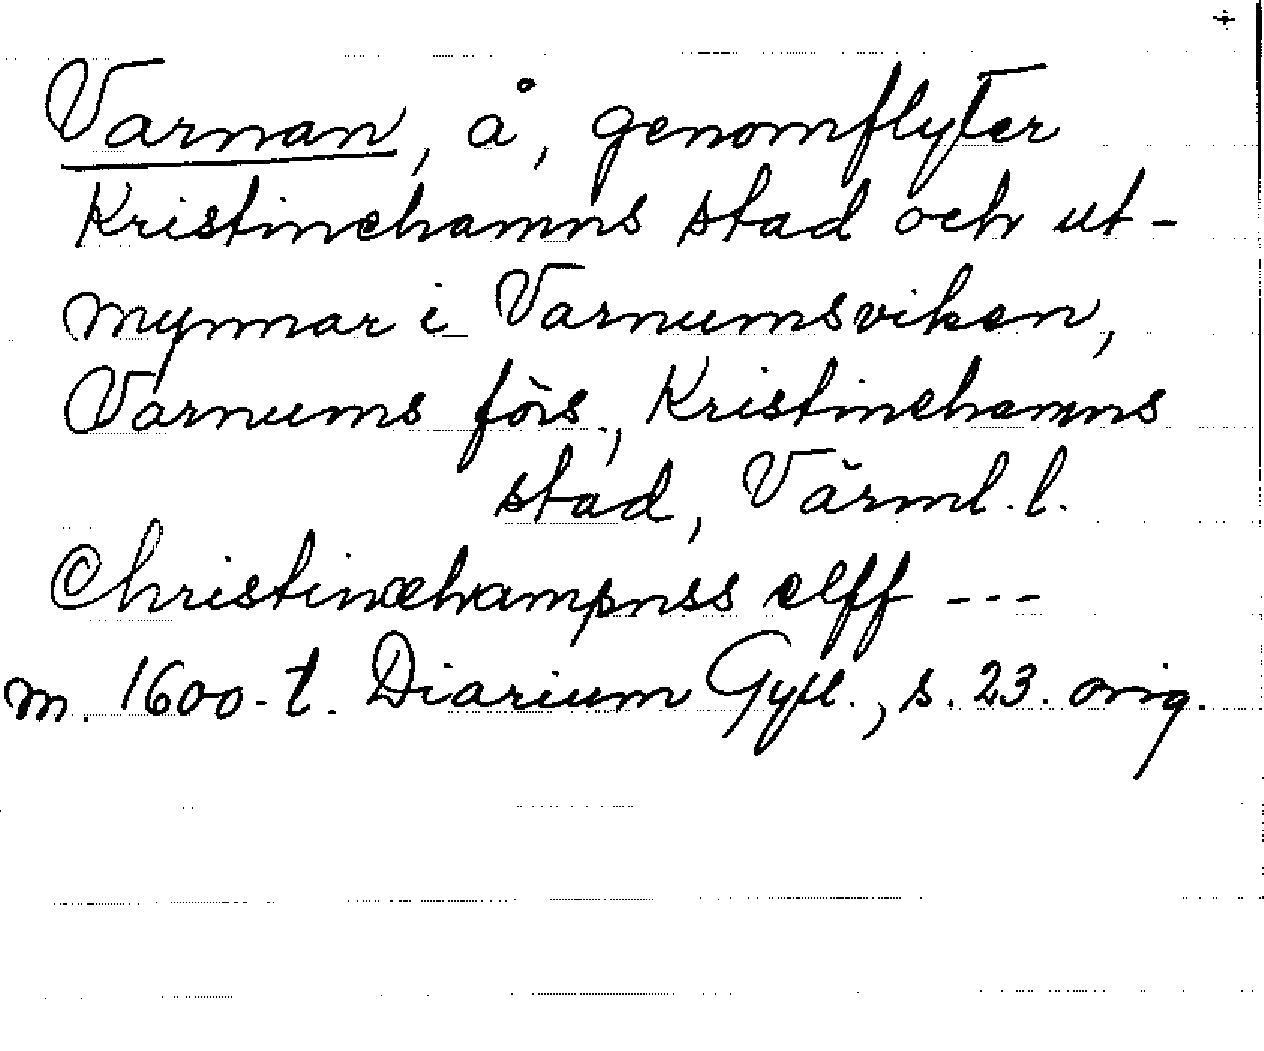 +
Varnan, å, genomflyter
Kristinehamns stad och ut-
mynnar i Varnumsviken,
Varnums förs., Kristinehamns
stad, Värml. l.
Christinæhampnss elff ---
m. 1600-t. Diarium Gyll., s. 23. orig.